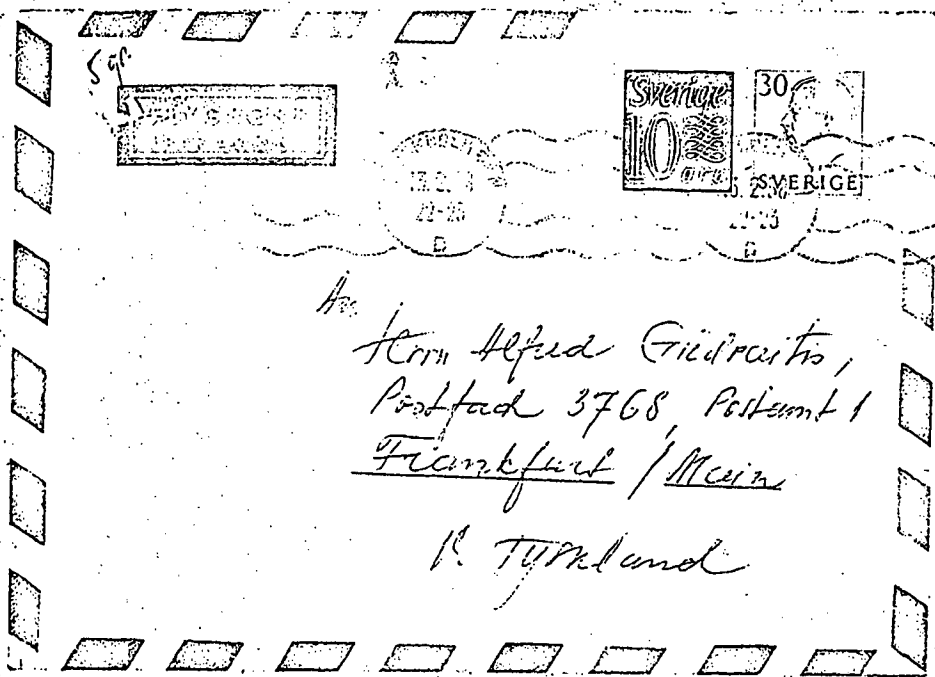 Sverige
10
öre
30
SVERIGE
22-23
D
D
An
Herrn Alfred Giedraitis,
Postfach 3768, Postamt 1
Frankfurt / Main
Tyskland